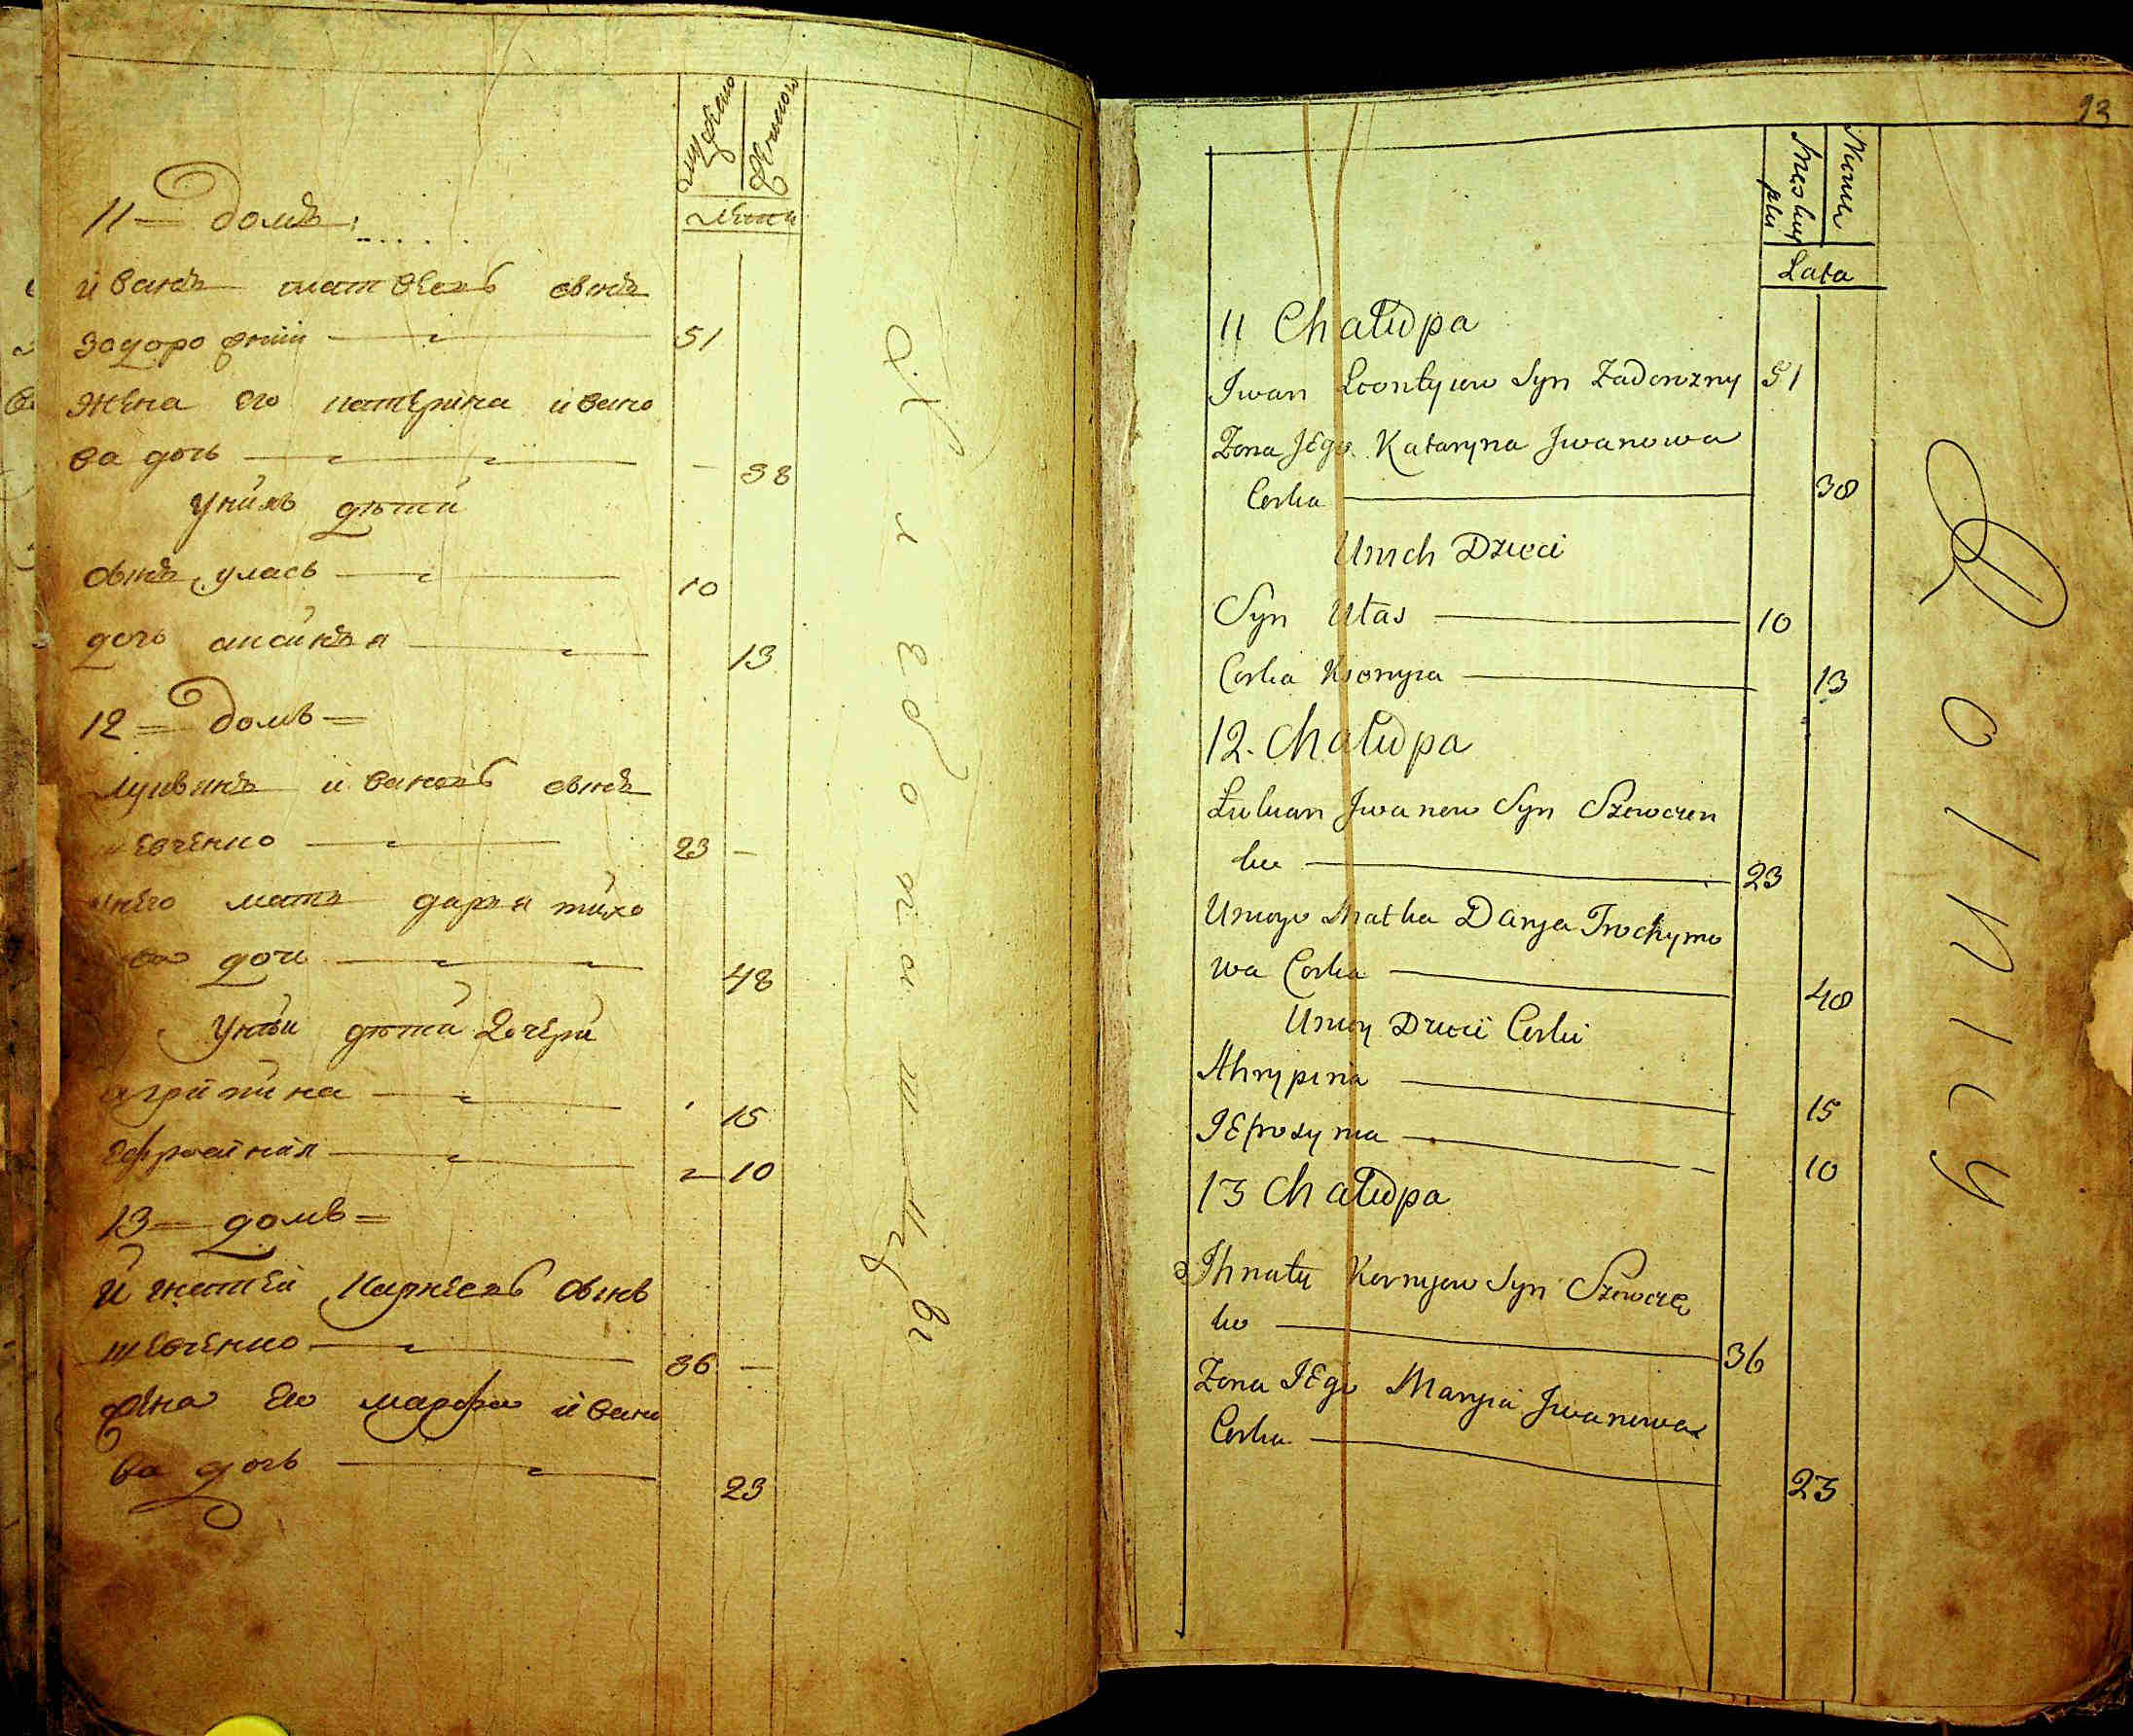 мужеско
женско
лѣта
11 домъ
иванъ матвеевъ сынъ
задорожний 51
жена его катерина ивано
ва дочь 38
у них дѣти
сынъ улась 10
дочь аксиния 13
12 домъ
лукянъ ивановъ сынъ
шевченко 23 —
у него мать дарья тихо
нова дочь 48
у неи дѣти дочери
агрипина 15
ефросиния 10
13 домъ
игнатей карнеевъ сынъ
шевченко 36 —
жена его марфа ивано
ва дочь 23
93
Męskiey płci
Lata
11 Chałupa
Iwan Leontyiew Syn Zadorożny 51
Zona Jego Kataryna Iwanowa
Corka 38
Unich Dzieci
Syn Ułas 10
Corka Ksenyia 13
12. Chałupa
Łukian Iwanow Syn Szewczen
ko 23
Uniego Matka Darya Trochymo
wa Corka 48
Uniey Dzieci Corki
Ahrypina 15
JEfrosynia 10
13 Chałupa
Ihnaty Kornyiew Syn Szewcze
ko 36
Zona JEgo Maryia Iwanowa
Corka 23
Rolnicy